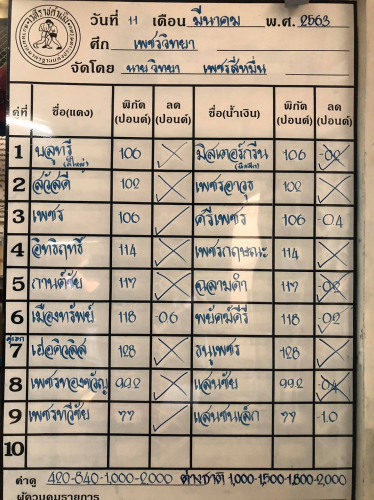 วันที่ 11 เดือน มีนาคม พ.ศ. 2563
ศึก เพชรวิทยา
จัดโดย นายวิทยา เพชรสี่หมื่น
คู่ที่ ชื่อ(แดง) พิกัด (ปอนด์) ลด (ปอนด์) ชื่อ(น้ำเงิน) พิกัด (ปอนด์) ลด (ปอนด์)
1 106 มิสเตอร์กรีน 106 -02
2 สวัสดี 102 เพชรอาวุธ 102
3 เพชร 106 ศรีเพชร 106 -04
4 อิทธิฤทธิ์ 114 เพชรกฤษณะ 114
5 กานต์ชัย 117 ฉลามดำ 117 -02
6 เมืองทรัพย์ 118 -06 พยัคฆ์คีรี 118 -02
คู่เอก
7 เฮอคิวลิส 128 ธนูเพชร 128
8 เพชรทองขวัญ 99.2 แสนชัย 99.2 -04
9 เพชรทวีชัย 77 แสนชนเล็ก 77 -1.0
10
ค่าดู 420-840-1,000-2,000 ต่างชาติ 1,000-1,500-1,800-2,000
ผู้ควบคุมรายการ